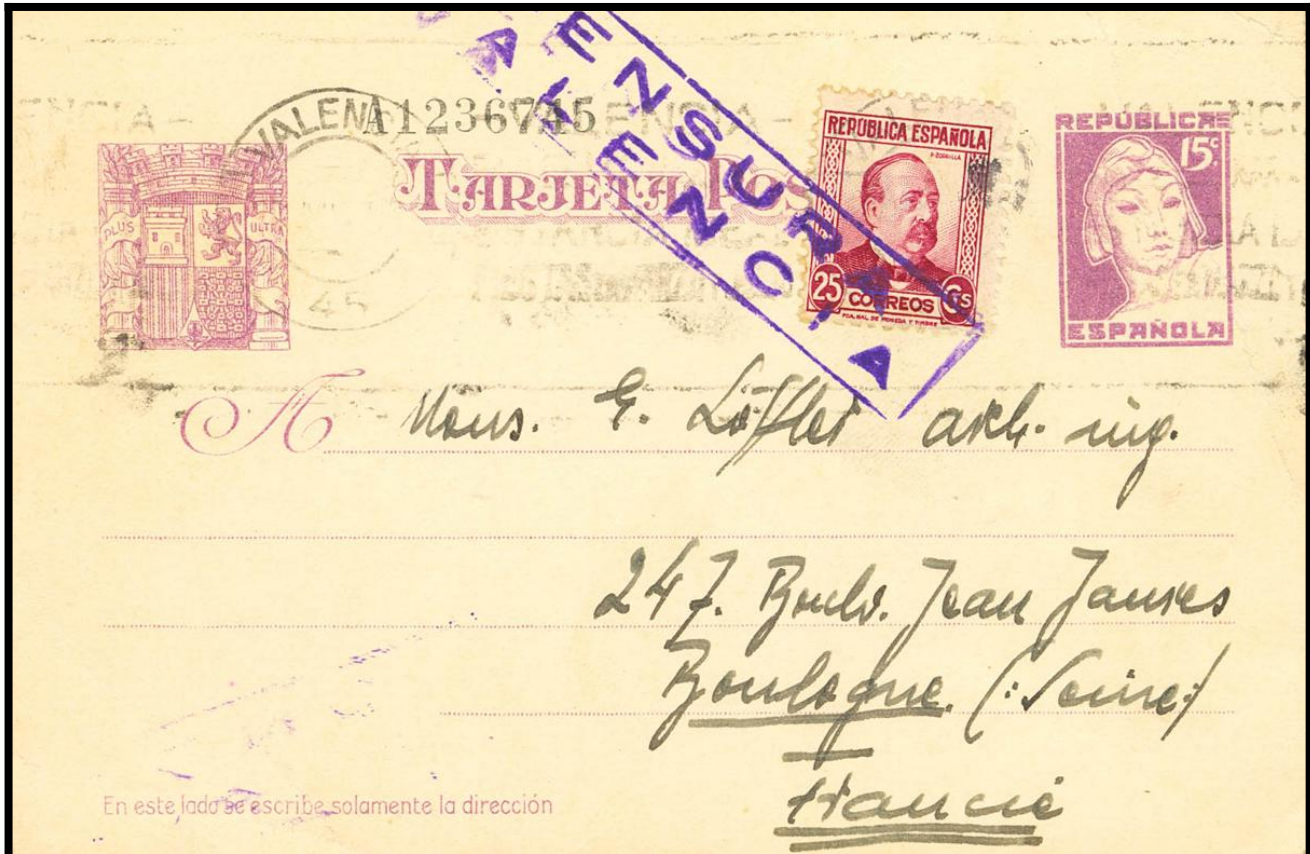 VALEN
A1236745
TARJETA POS
PLUS ULTRA
45
REPÚBLICA ESPAÑOLA
25 CORREOS Cts
REPÚBLICA
15c
ESPAÑOLA
ENSURA
VALENCIA
A Mons. E. Löffler arch. ing.
247. Boulv. Jean Jaures
Boulogne. (:Seine:)
France
En este lado se escribe solamente la dirección